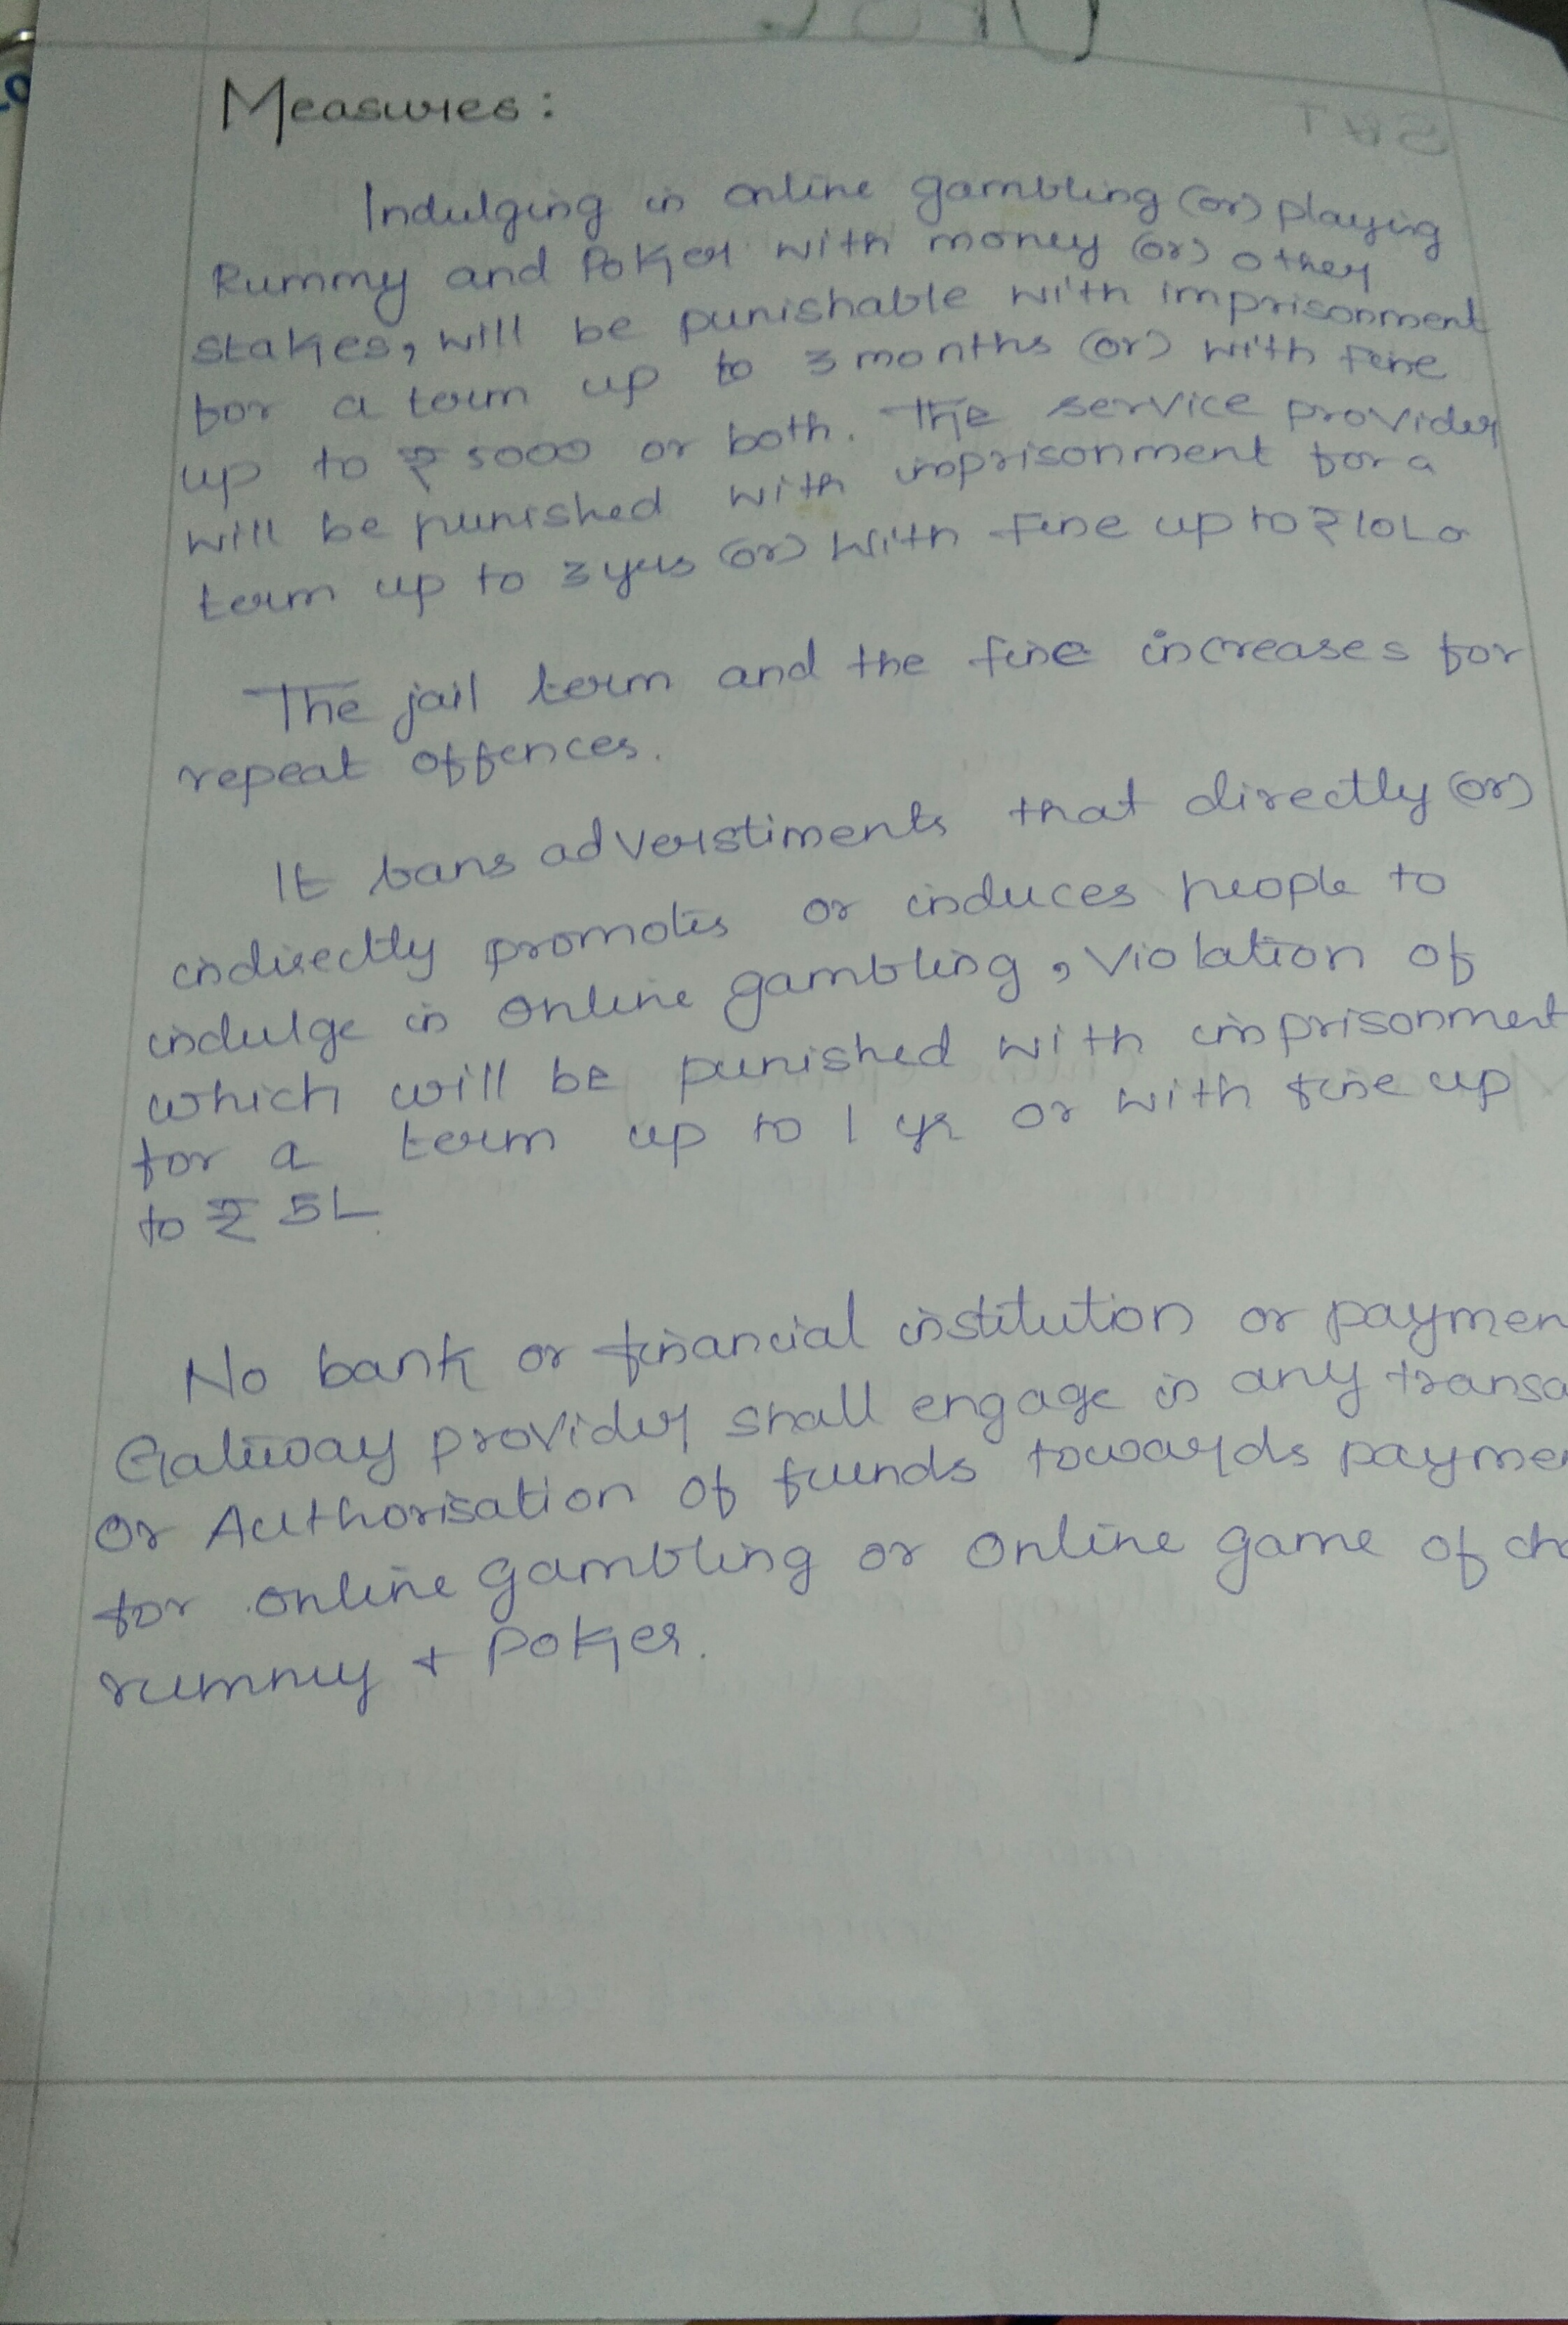 Measures:
Indulging in online gambling (or) playing
Rummy and Poker with money (or) other
stakes, will be punishable with imprisonment
for a term up to 3 months (or) with fine
up to ₹ 5000 or both. The service provider
will be punished with imprisonment for a
term up to 3 yrs (or) with fine up to ₹ 10L
The jail term and the fine increases for
repeat offences.
It bans adverstiments that directly (or)
indirectly promotes or induces people to
indulge in online gambling, violation of
which will be punished with imprisonment
for a term up to 1 yr or with fine up
to ₹ 5L.
No bank or financial institution or paymen
Gateway provider shall engage in any transa
or Authorisation of funds towards payme
for online gambling or online game of cha
rummy + Poker.